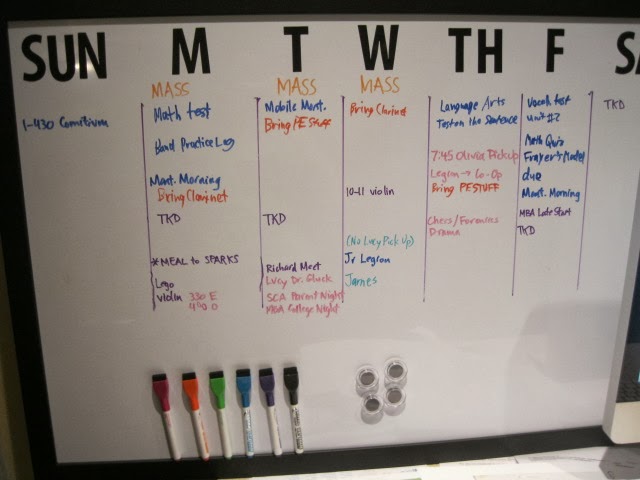 SUN M T W TH F SA
1-430 Comitium
MASS
Math test
Band Practice Log
Mant. Morning
Bring Clarinet
TKD
*MEAL to SPARKS
Lego
violin 350 E
450 O
MASS
Mobile Mant.
Bring PE Stuff
TKD
Richard Meet
Lucy Dr. Gluck
SCA Parent Night
MBA College Night
MASS
Bring Clarinet
10-11 violin
(No Lucy Pick Up)
Jr Legion
James
Language Arts
Test on the Sentence
7:45 Olivia Pickup
Legion → Co-Op
Bring PE STUFF
Chess/Forensics
Drama
Vocab test
unit #2
Math Quiz
Frayer's Model
due
Mant. Morning
MBA Late Start
TKD
TKD